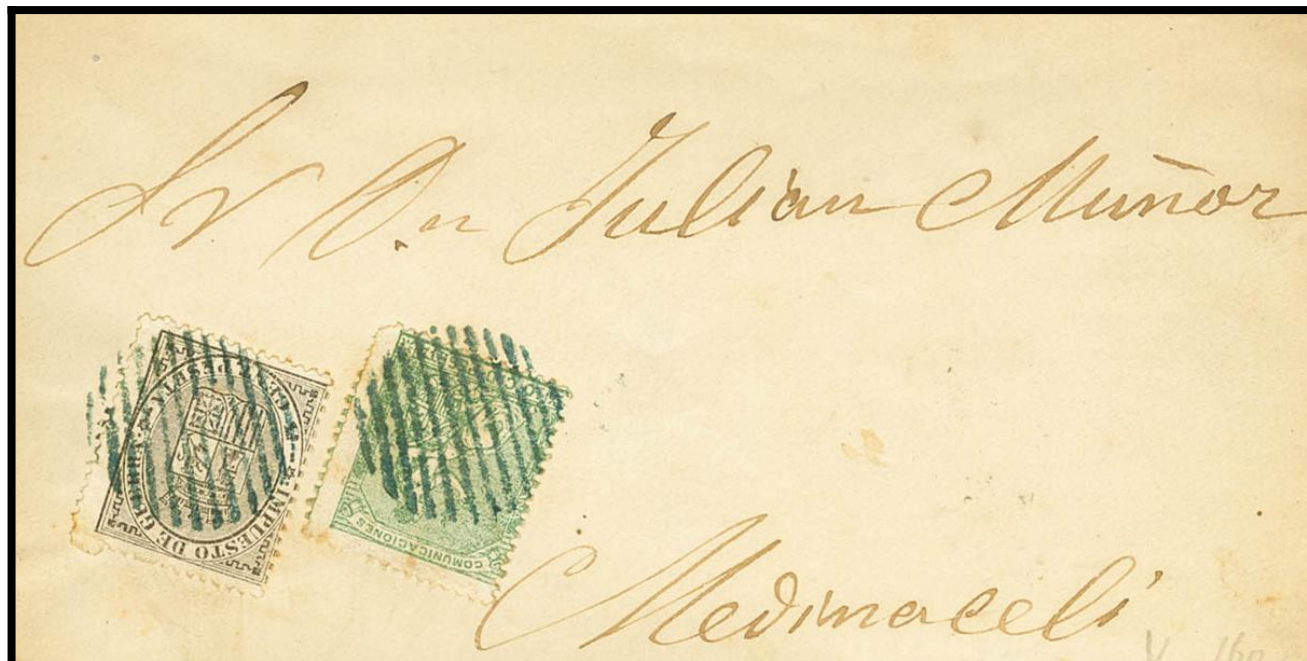 Sr Dn Julian Muñoz
5 CENT. PESETA
IMPUESTO DE GUERRA
COMUNICACIONES
Medinaceli